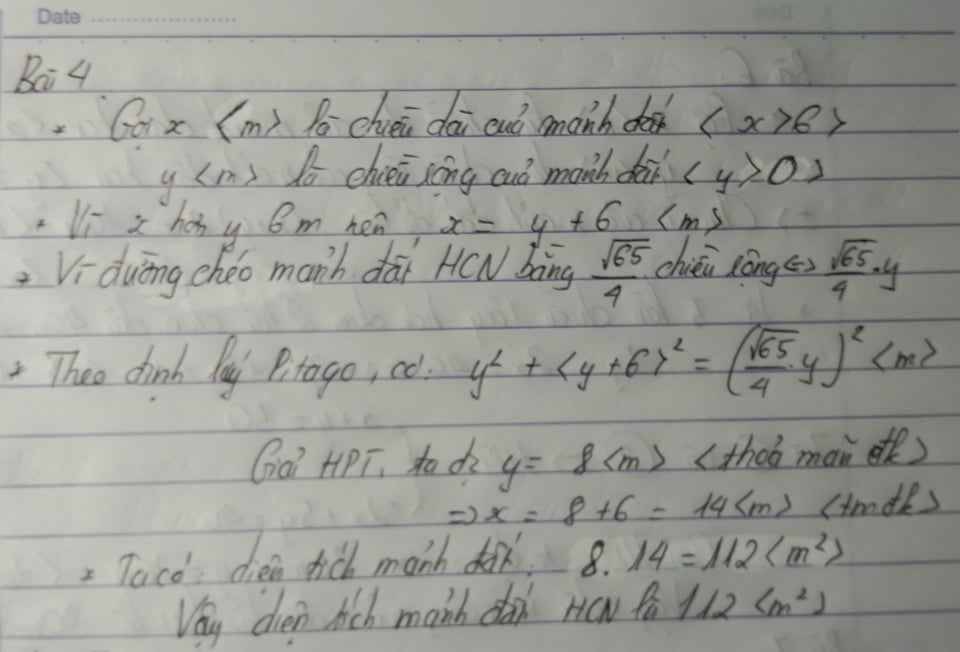 Date ....................
Bài 4
* Gọi x <m> là chiều dài của mảnh đất < x>6 >
y <m> là chiều rộng của mảnh đất < y>0 >
* Vì x hơn y 6m nên x = y + 6 <m>
* Vì đường chéo mảnh đất HCN bằng √65/4 chiều rộng <=> √65/4 . y
* Theo định lý Pitago, có: y² + <y+6>² = (√65/4 . y)² <m>
Giải HPT, ta đc y = 8 <m> <thoả mãn đk>
=> x = 8+6 = 14 <m> <tmđk>
* Ta có: diện tích mảnh đất: 8. 14 = 112 <m²>
Vậy diện tích mảnh đất HCN là 112 <m²>